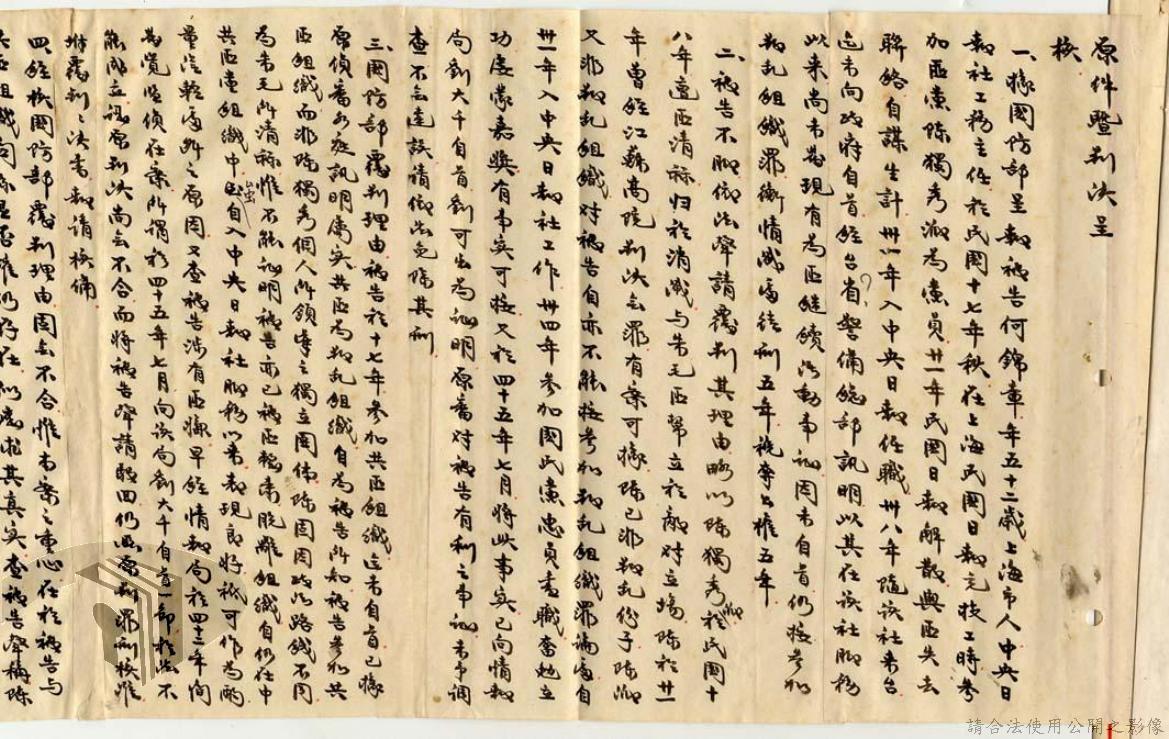 原件暨判決呈
核
一、據國防部呈報被告何錦章年五十二歲上海市人中央日
報社工務主任於民國十七年秋在上海民國日報充技工時參
加匪黨陳獨秀派為黨員廿一年民國日報解散與匪失去
聯絡自謀生計卅一年入中央日報任職卅八年隨該社來台
迄未向政府自首經台省警備總部訊明以其在該社服務
以來尚未發現有為匪繼續活動事証因未自首仍按參加
叛乱組織罪衡情減處徒刑五年褫奪公權五年
二、被告不服依法聲請覆判其理由略以陳獨秀派於民國十
八年遭匪清祘归於消滅与朱毛幫立於敵对立場陳於廿一
年曾經江蘇高院判決無罪有案可據陳已非叛乱份子陳派
又非叛乱組織对被告自亦不能按參加叛乱組織罪論處自
卅一年入中央日報社工作卅四年參加國民黨忠貞盡職奮勉立
功屢蒙嘉獎有事实可按又於四十五年七月將此事实已向情報
局劉大千自首劉可出為証明原審对被告有利之事証未予調
查不無違誤請依法免除其刑
三、國防部覆判理由被告於十七年參加共匪組織迄未自首已據
原偵審分庭訊明屬实共匪為叛乱組織自為被告所知被告參加共
匪組織而非陳獨秀個人所領導之獨立團体陳固因政治路線不同
為朱毛所清祘惟不能証明被告亦已被匪整肅脫離組織自仍在中
共匪黨組織中至自入中央日報社服務以來表現良好祇可作為酌
量從輕處断之原因又查被告涉有匪嫌早經情報局於四十三年間
發覺監偵在案所謂於四十五年七月向該局劉大千自首一節於法不
能成立認原判決尚無不合而將被告聲請駁回仍照原判罪刑核准
檢同覆判判決書報請核備
四、經核國防部覆判理由固無不合惟本案之重心在於被告与
共匪組織關係是否確仍存在似應求其真实查被告聲稱陳
請合法使用公開之影像